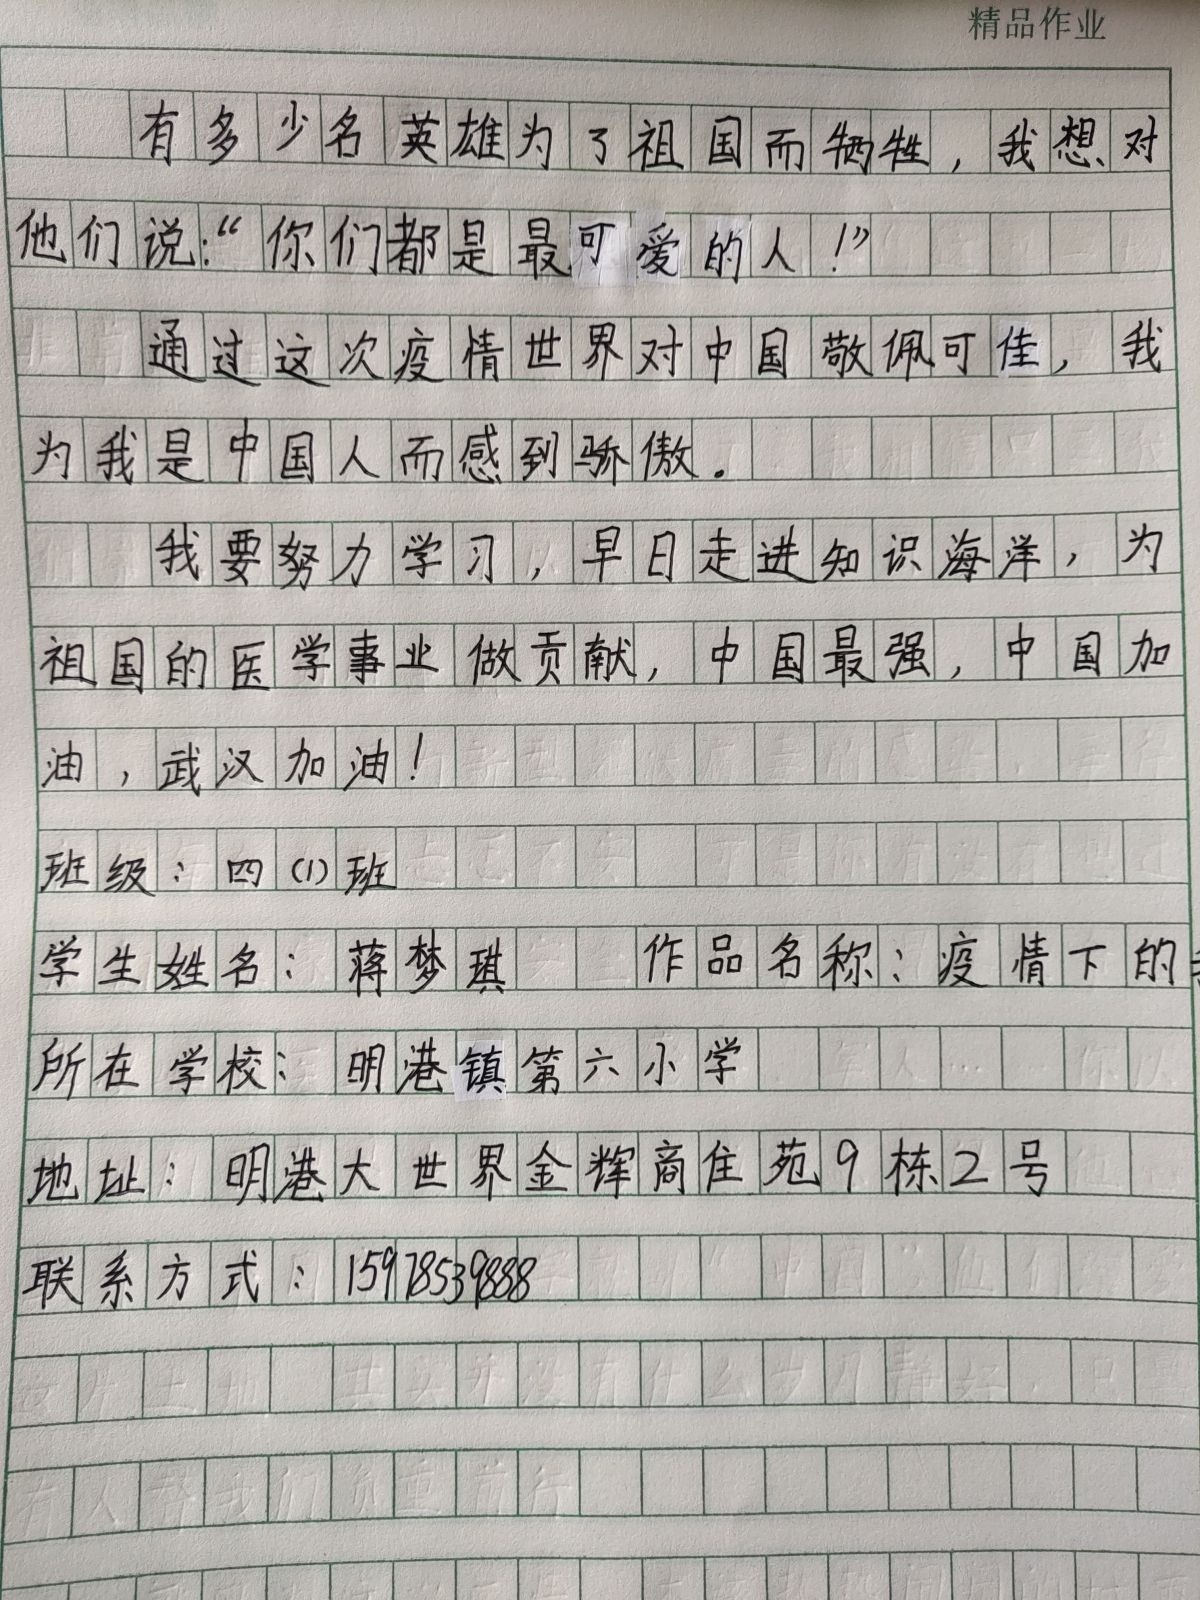 精品作业
有多少名英雄为了祖国而牺牲，我想对
他们说：“你们都是最可爱的人！”
通过这次疫情世界对中国敬佩可佳，我
为我是中国人而感到骄傲。
我要努力学习，早日走进知识海洋，为
祖国的医学事业做贡献，中国最强，中国加
油，武汉加油！
班级：四（1）班
学生姓名：蒋梦琪 作品名称：疫情下的
所在学校：明港镇第六小学
地址：明港大世界金辉商住苑9栋2号
联系方式：15978539888